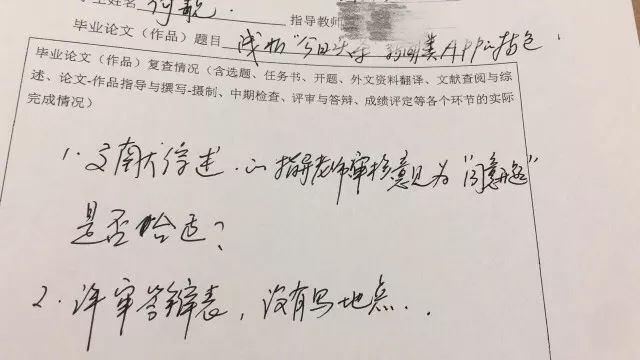 学生姓名 指导教师
毕业论文（作品）题目 浅析"今日头条"新闻类APP的特色
毕业论文（作品）复查情况（含选题、任务书、开题、外文资料翻译、文献查阅与综
述、论文-作品指导与撰写-摄制、中期检查、评审与答辩、成绩评定等各个环节的实际
完成情况）
1. 文献综述的指导老师审核意见为"同意开题"
是否恰适？
2. 评审答辩表，没有写地点..